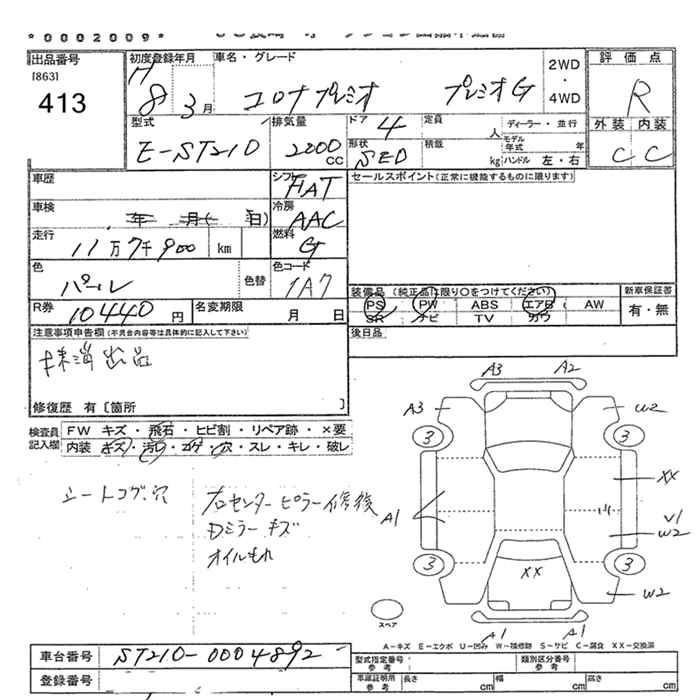 *0002009*
出品番号
[863]
413
初度登録年月 車名・グレード
H 8 年 3 月 コロナプレミオ プレミオG
2WD
・
4WD
評価点
R
外装 内装
C C
型式 排気量 ドア 定員 ディーラー・並行
E-ST210 2000 CC 4 人 モデル年式 年
形状 積載 kg ハンドル 左・右
SED
車歴 シフト FAT
セールスポイント(正常に機能するものに限ります)
車検 年 月( 日) 冷房 AAC
走行 11万7千900 km 燃料 G
色 パール 色替 色コード 1A7
R券 10440 円 名変期限 月 日
装備品(純正品は限り○をつけてください) 新車保証書
PS PW ABS エアB AW 有・無
SR ナビ TV カワ
注意事項申告欄(不具合内容等は具体的に記入して下さい) 後日品
抹消出品
修復歴 有〔箇所 〕
検査員 FW キズ・飛石・ヒビ割・リペア跡・×要
記入欄 内装 キズ・汚れ・コゲ・穴・スレ・キレ・破レ
シートコゲ穴
フロセンターピラー修後
Dミラーキズ
オイルもれ
A3 A2
A3 W2
3 3
XX
A1 V1
W2
3 3
XX
W2
スペア
A1 A1
A-キズ E-エクボ U-凹み W-補修跡 S-サビ C-腐食 XX-交換済
車台番号 ST210-0004892
登録番号
型式指定番号 参考 類別区分番号 参考
車庫証明用 参考 長さ cm 幅 cm 高さ cm